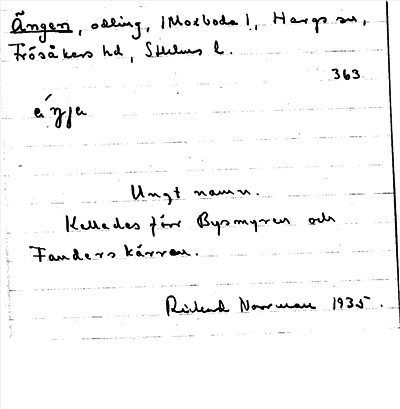 Ängen, odling, (Morboda), Hargs sn,
Frösåkers hd, Sthlms l.
363
Ungt namn.
Kallades förr Bysmyren och
Fanderskärren.
Rickard Norrman 1935.